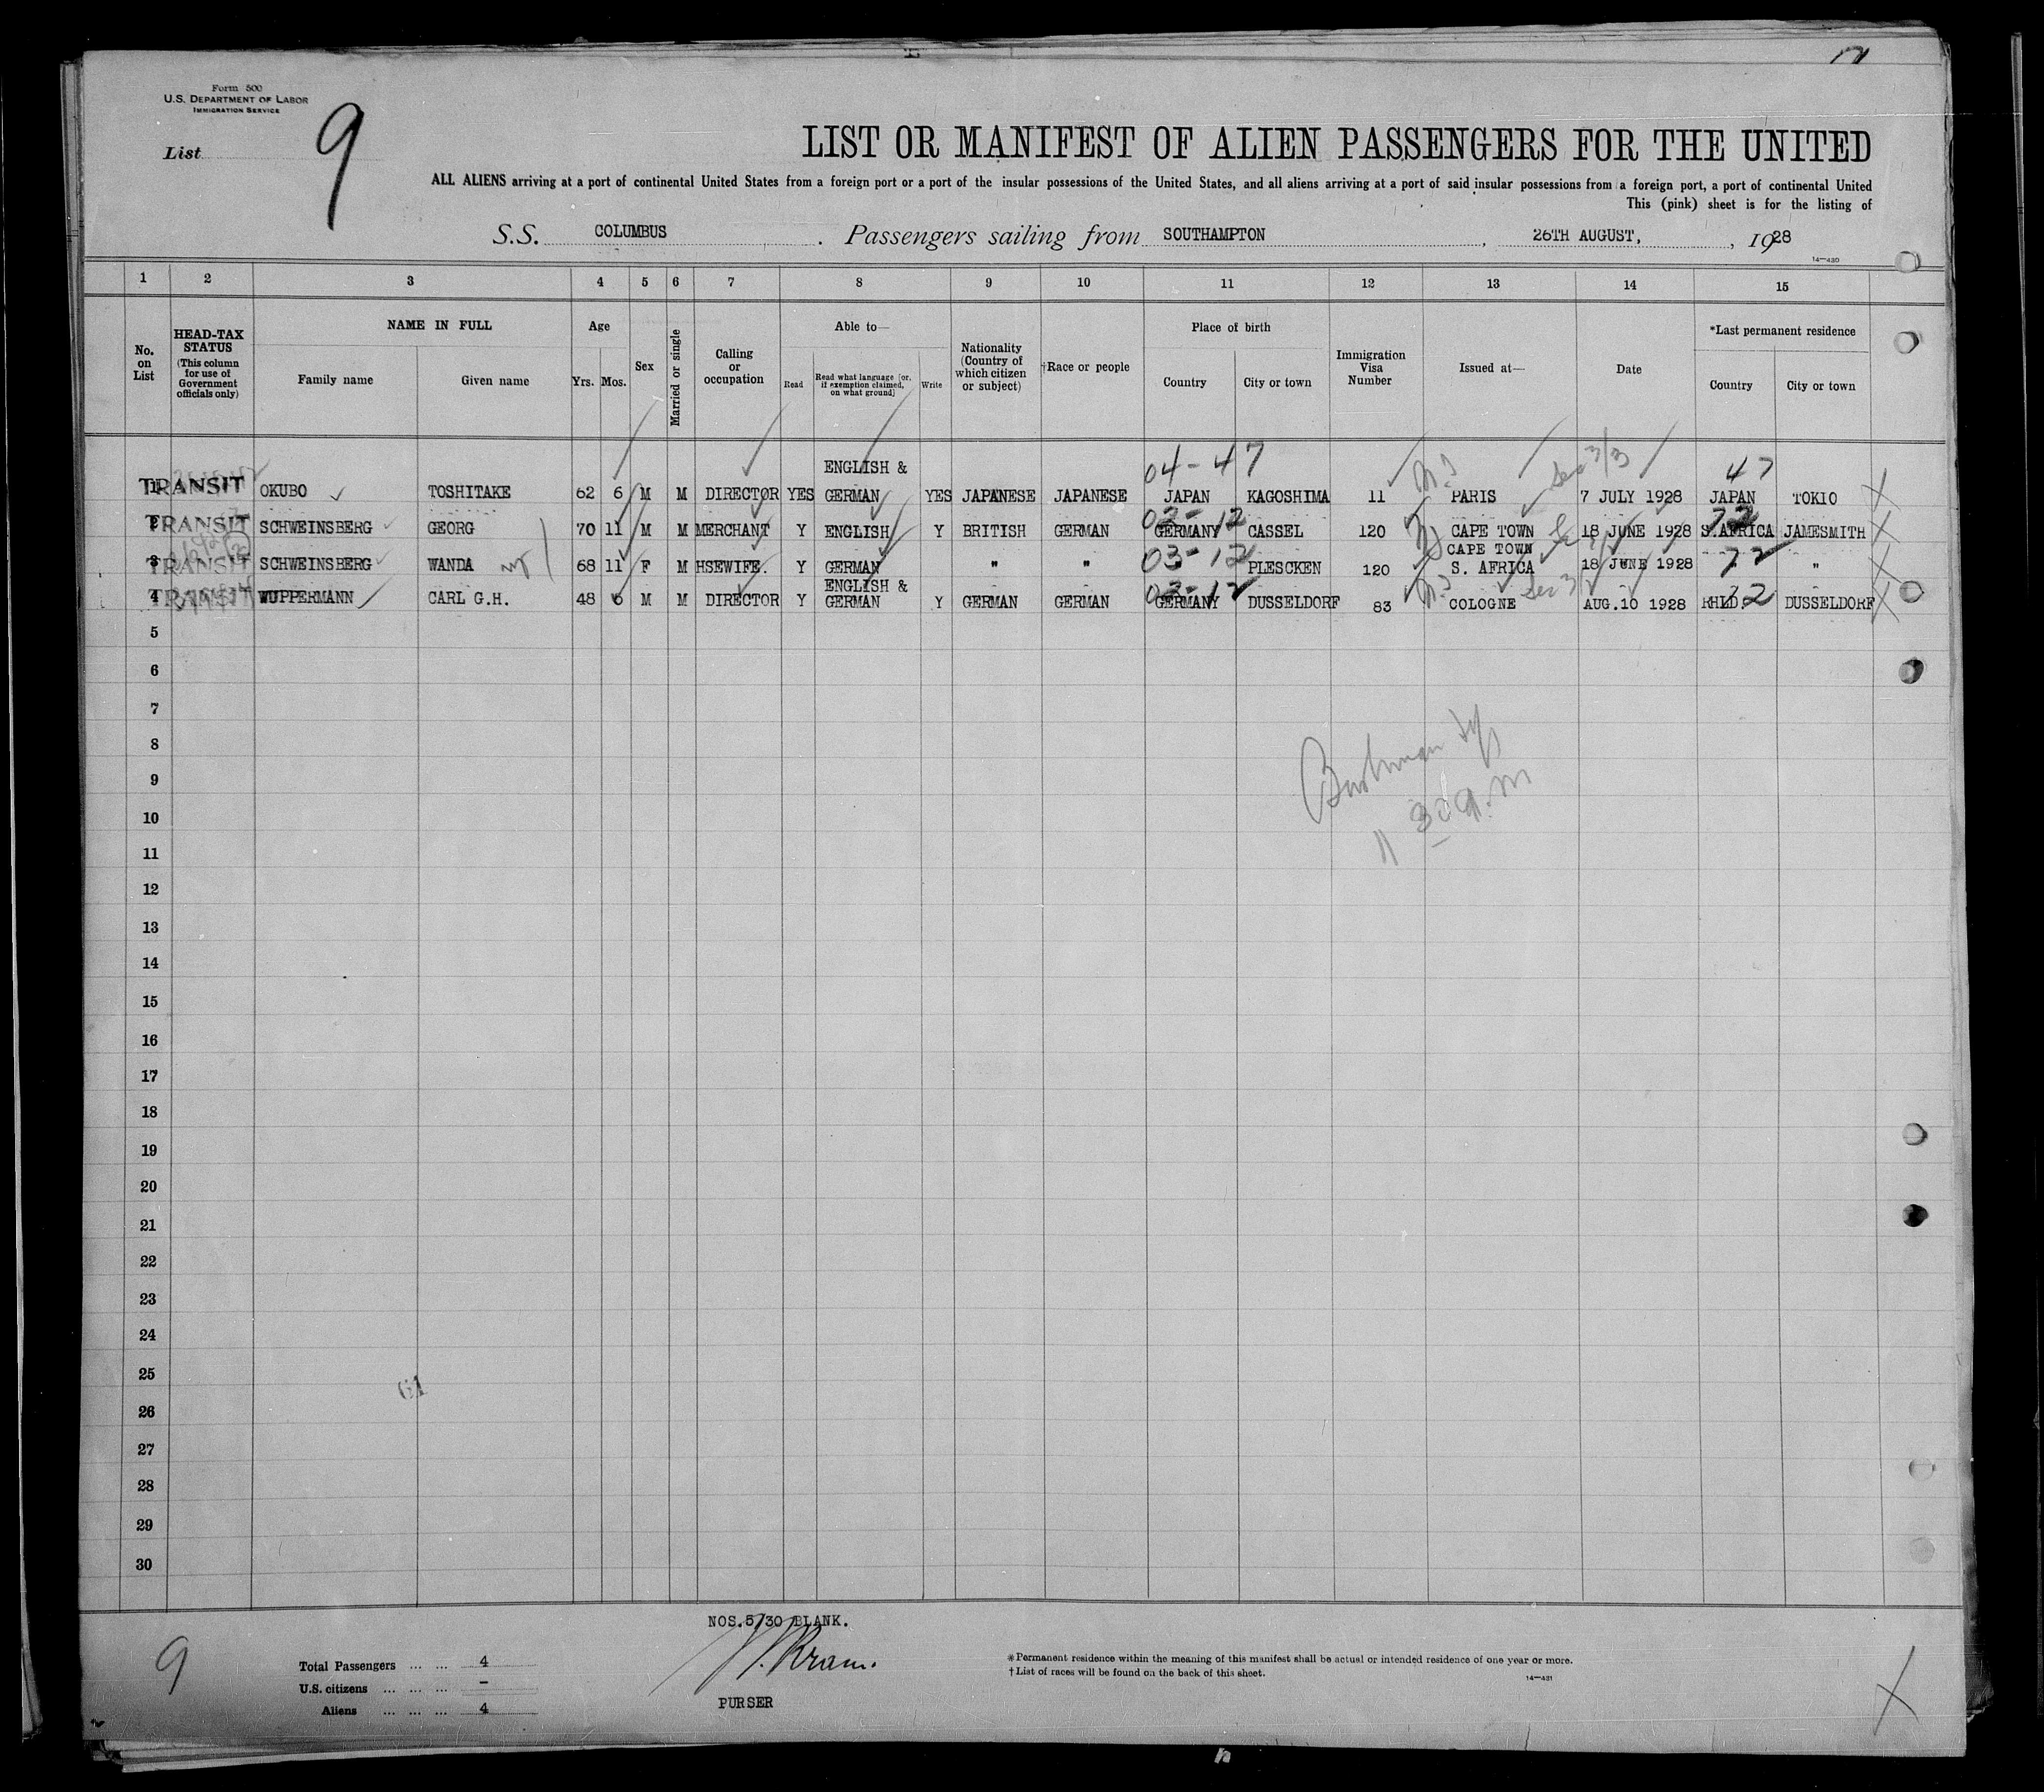 Form 500
U.S. DEPARTMENT OF LABOR
IMMIGRATION SERVICE
List 9
LIST OR MANIFEST OF ALIEN PASSENGERS FOR THE UNITED
ALL ALIENS arriving at a port of continental United States from a foreign port or a port of the insular possessions of the United States, and all aliens arriving at a port of said insular possessions from a foreign port, a port of continental United
This (pink) sheet is for the listing of
S.S. COLUMBUS. Passengers sailing from SOUTHAMPTON, 26TH AUGUST, , 1928
14-430
1 2 3 4 5 6 7 8 9 10 11 12 13 14 15
No. on List
HEAD-TAX STATUS (This column for use of Government officials only)
NAME IN FULL
Family name Given name
Age
Yrs. Mos.
Sex
Married or single
Calling or occupation
Able to—
Read
Read what language [or, if exemption claimed, on what ground]
Write
Nationality (Country of which citizen or subject)
†Race or people
Place of birth
Country City or town
Immigration Visa Number
Issued at—
Date
*Last permanent residence
Country City or town
04-47 47
ENGLISH &
1 TRANSIT OKUBO TOSHITAKE 62 6 M M DIRECTOR YES GERMAN YES JAPANESE JAPANESE JAPAN KAGOSHIMA 11 PARIS 7 JULY 1928 JAPAN TOKIO
03-12 72
2 TRANSIT SCHWEINSBERG GEORG 70 11 M M MERCHANT Y ENGLISH Y BRITISH GERMAN GERMANY CASSEL 120 CAPE TOWN 18 JUNE 1928 S.AFRICA JAMESMITH
CAPE TOWN
3 TRANSIT SCHWEINSBERG WANDA 68 11 F M HSEWIFE. Y GERMAN " " 03-12 PLESCKEN 120 S. AFRICA 18 JUNE 1928 72 "
ENGLISH &
4 TRANSIT WUPPERMANN CARL G.H. 48 6 M M DIRECTOR Y GERMAN Y GERMAN GERMAN GERMANY 03-12 DUSSELDORF 83 COLOGNE AUG.10 1928 RHLD. DUSSELDORF
5
6
7
8
9
10
11
12
13
14
15
16
17
18
19
20
21
22
23
24
25
26
27
28
29
30
61
NOS.5/30 BLANK.
9
Total Passengers ... ... 4
U.S. citizens ... ... ... -
Aliens ... ... ... 4
PURSER
*Permanent residence within the meaning of this manifest shall be actual or intended residence of one year or more.
†List of races will be found on the back of this sheet.
14-431